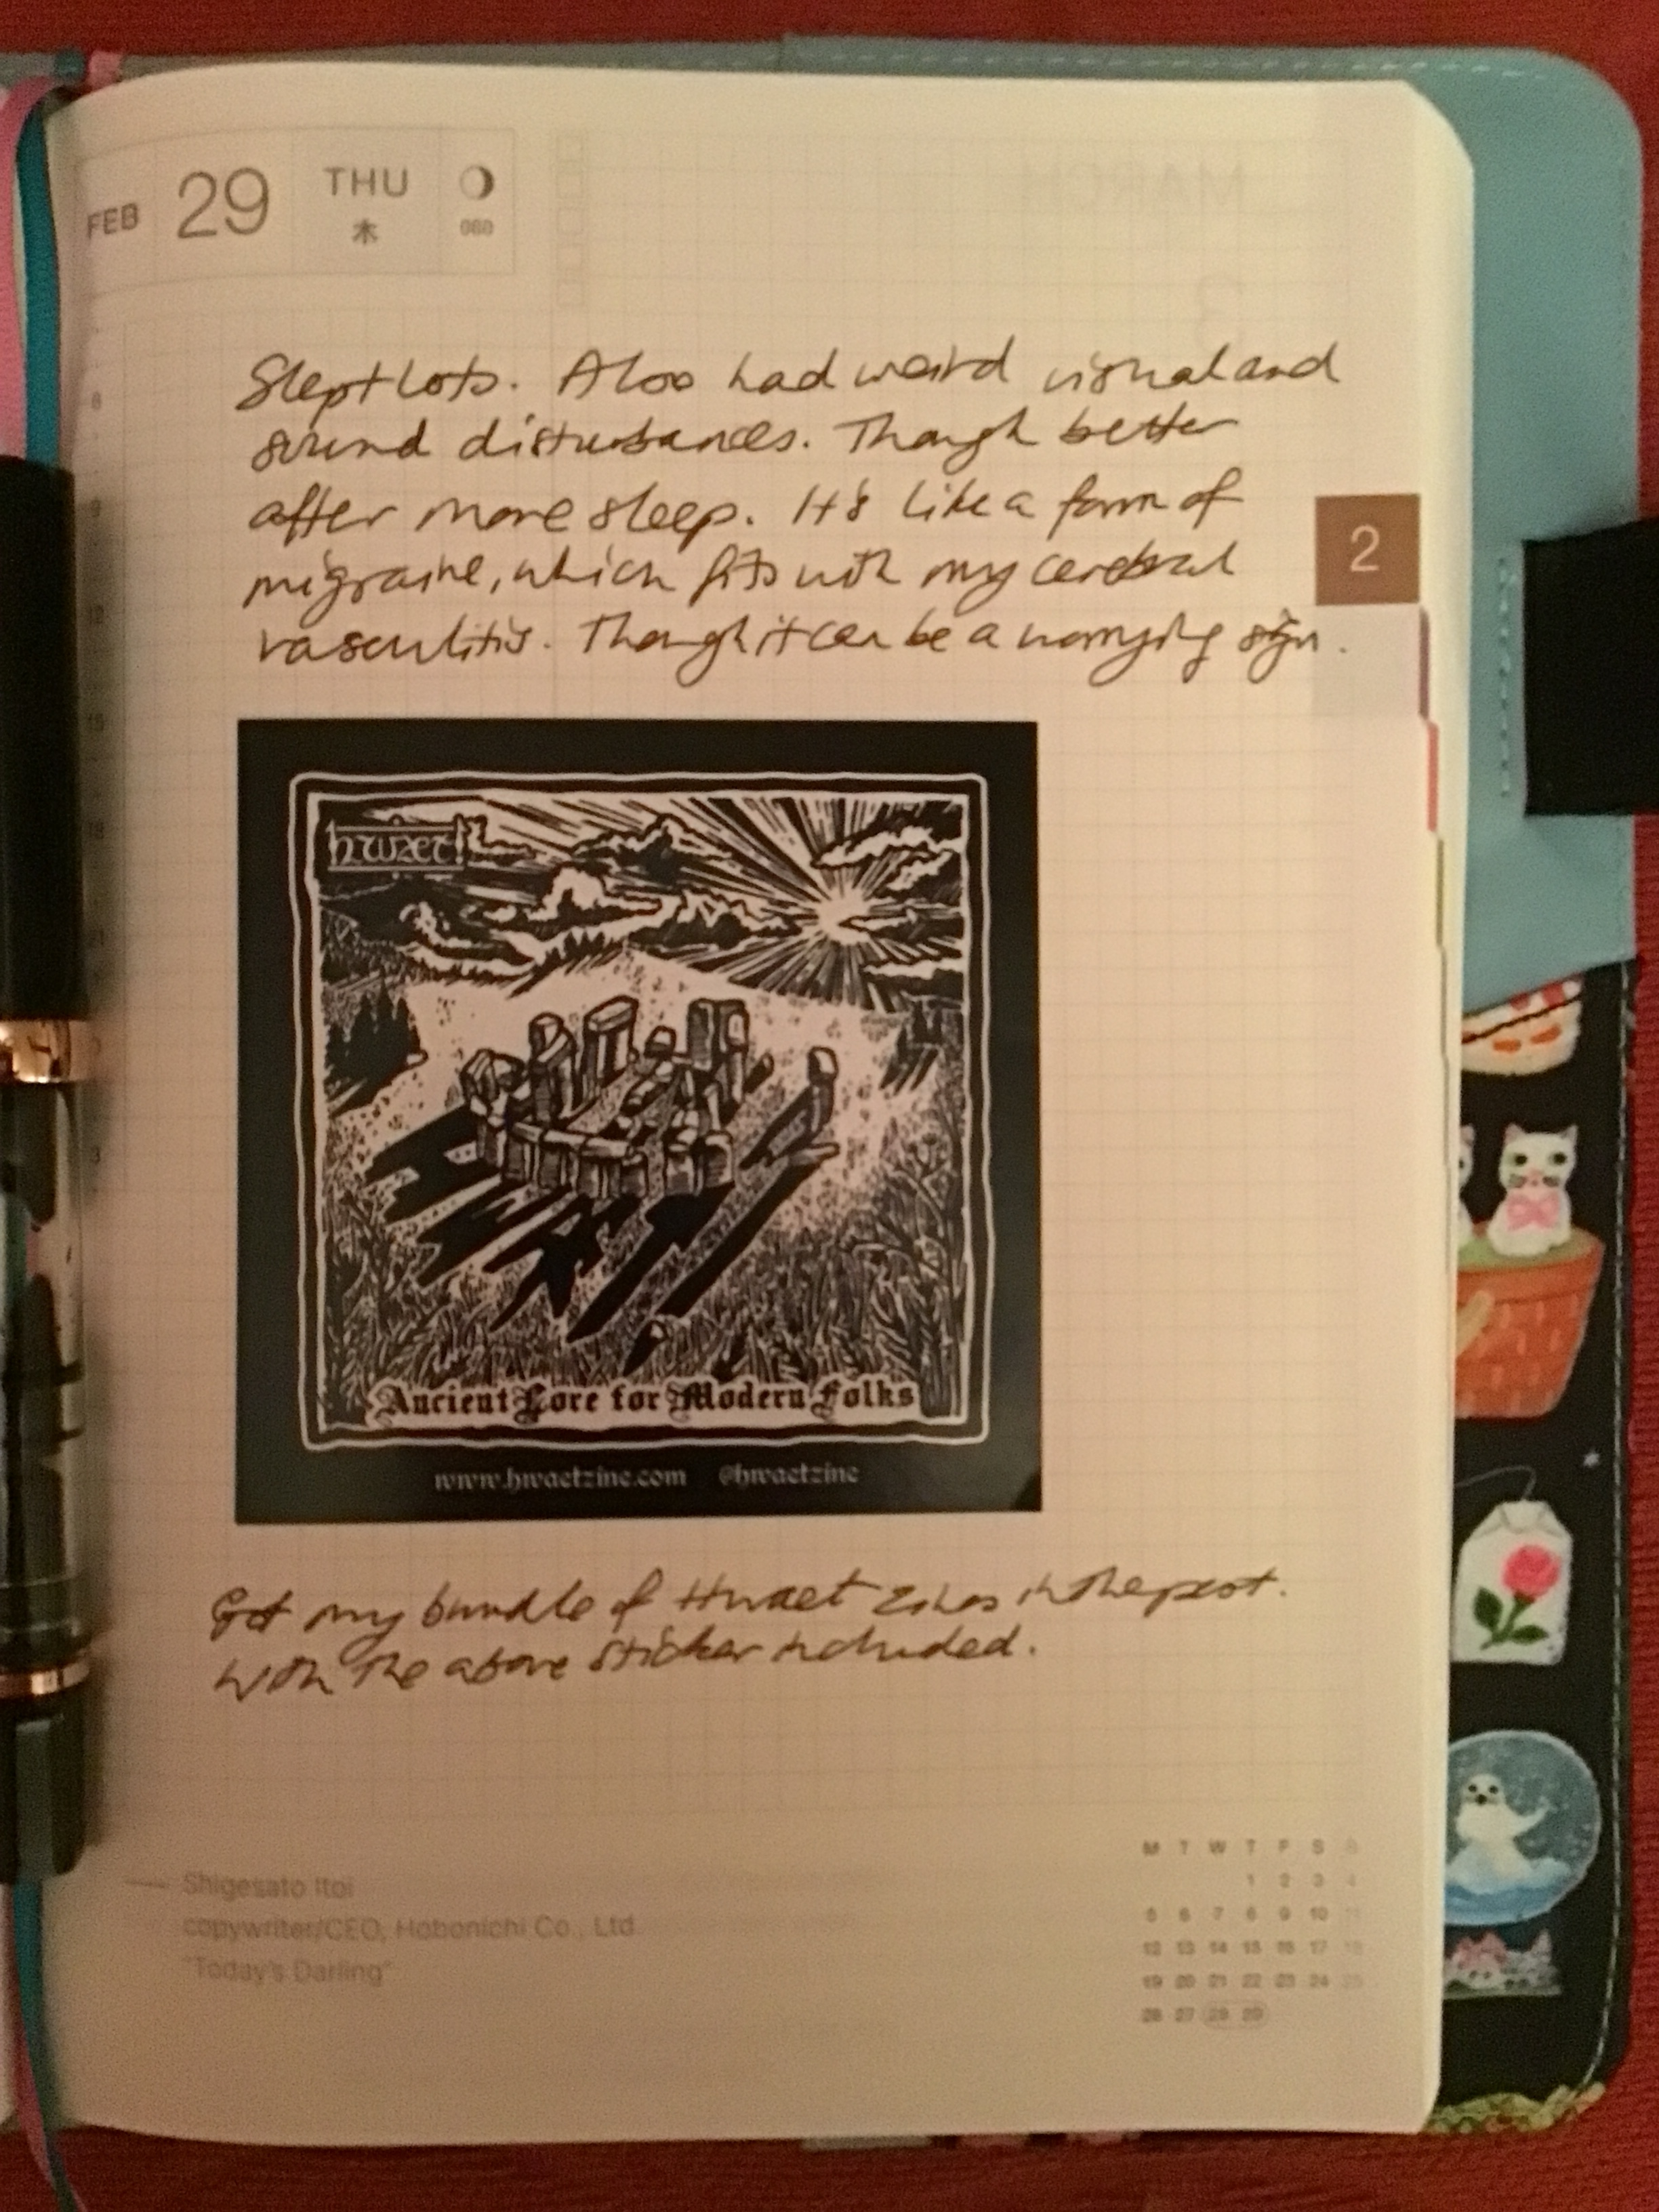 FEB 29 THU
木
060
MARCH
3
Slept lots. Also had weird visual and
sound disturbances. Though better
after more sleep. It's like a form of
migraine, which fits with my cerebral
vasculitis. Though it can be a worrying sign.
2
hwæt!
Ancient Lore for Modern Folks
www.hwaetzine.com @hwaetzine
Got my bundle of Hwaet zines in the post.
With the above sticker included.
Shigesato Itoi
copywriter/CEO, Hobonichi Co., Ltd.
"Today's Darling"
M T W T F S S
1 2 3 4
5 6 7 8 9 10 11
12 13 14 15 16 17 18
19 20 21 22 23 24 25
26 27 28 29